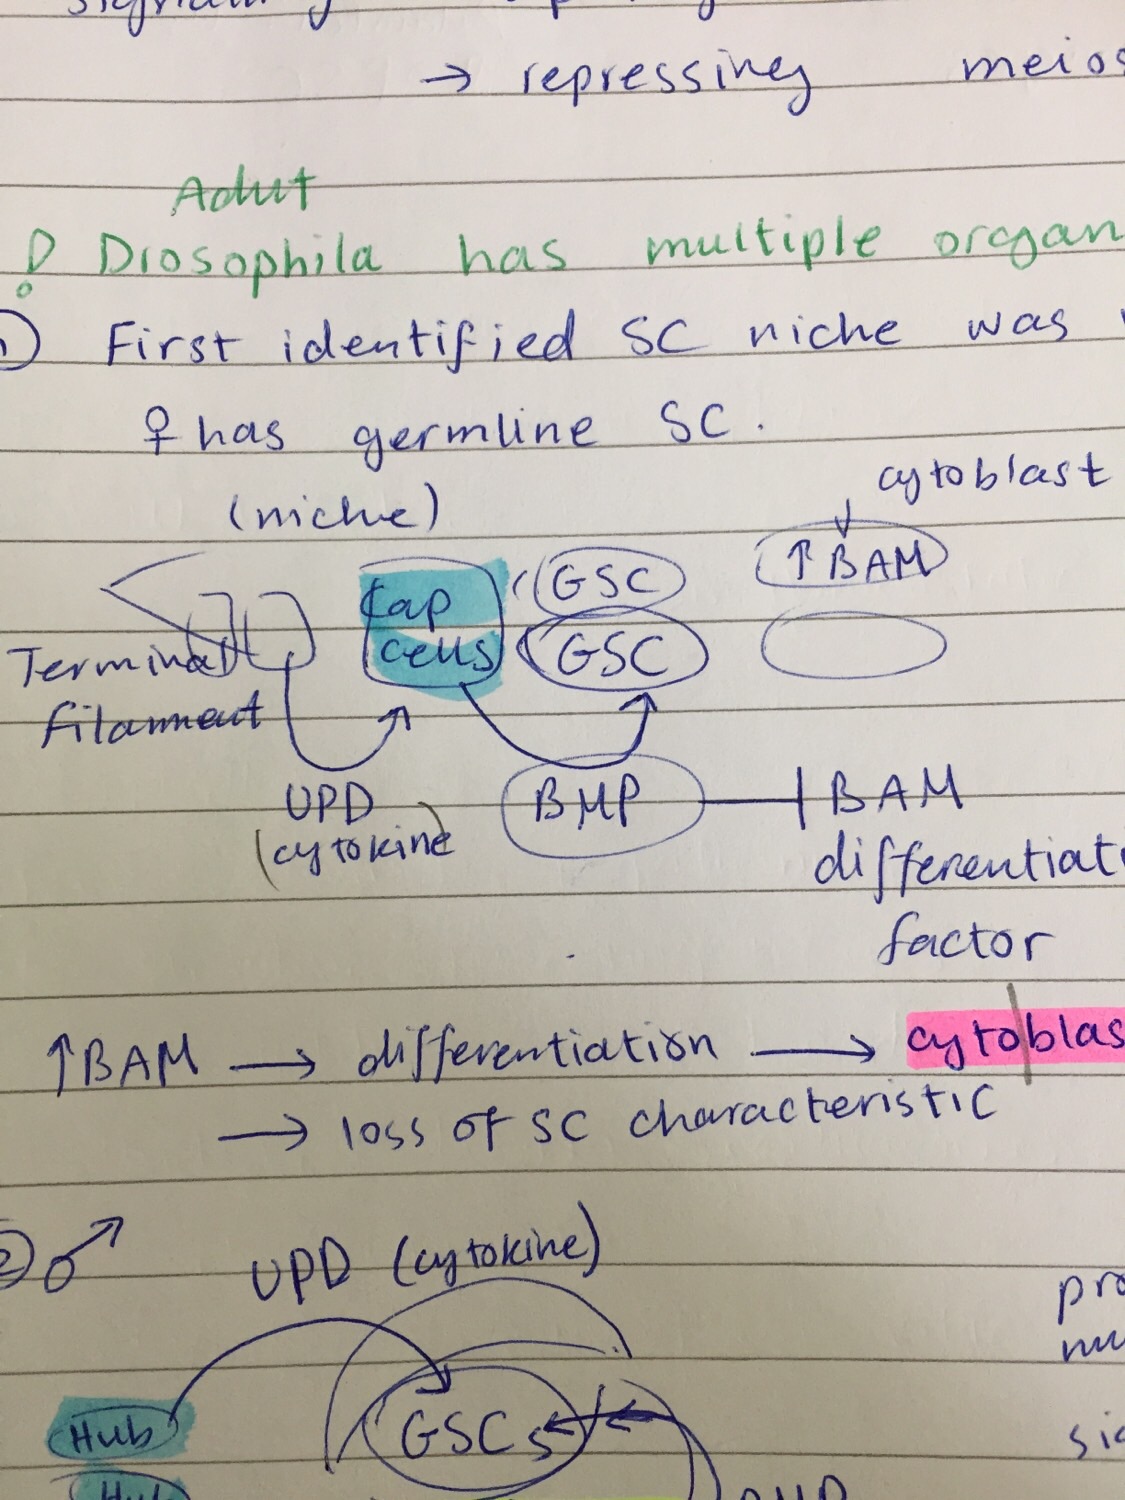 → repressing meios
Adult
! Drosophila has multiple organ
① First identified SC niche was
♀ has germline SC.
cytoblast
(niche)
↑BAM
Cap GSC
cells GSC
Terminal
filament
UPD BMP ⊣ BAM
(cytokine)
differentiati
factor
↑BAM → differentiation → cytoblas
→ loss of SC characteristic
② ♂ UPD (cytokine)
pro
Hub GSCs
Hub